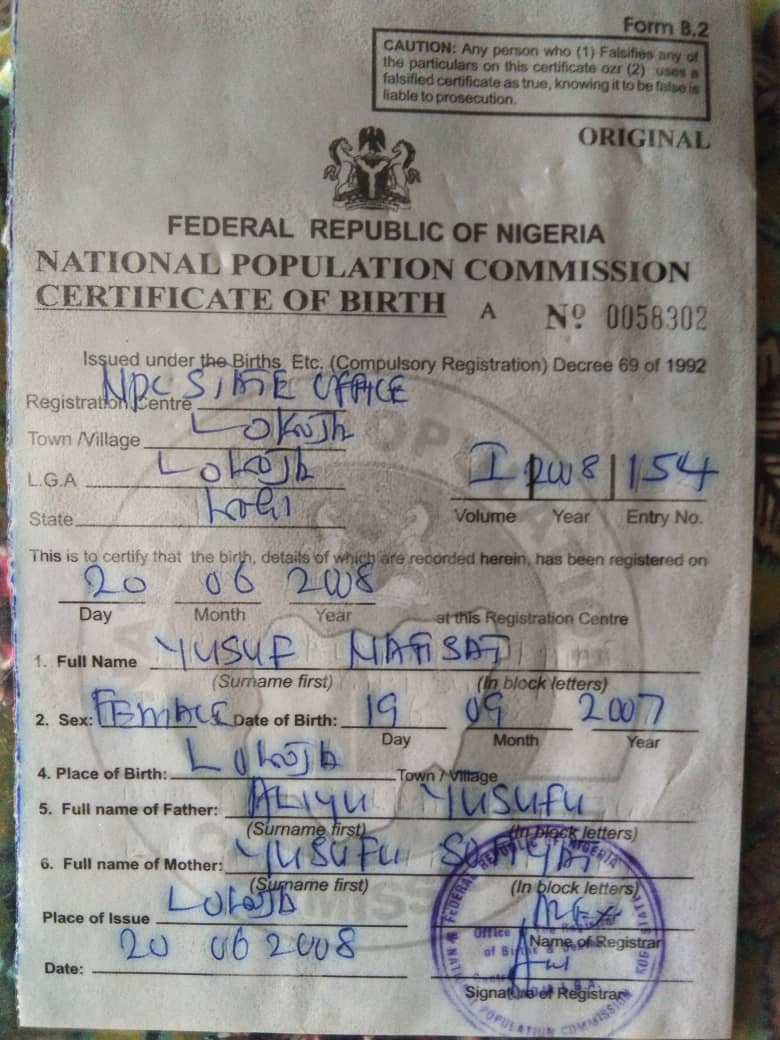 Form B.2
CAUTION: Any person who (1) Falsifies any of
the particulars on this certificate ozr (2) uses a
falsified certificate as true, knowing it to be false is
liable to prosecution.
ORIGINAL
FEDERAL REPUBLIC OF NIGERIA
NATIONAL POPULATION COMMISSION
CERTIFICATE OF BIRTH A Nº 0058302
Issued under the Births, Etc. (Compulsory Registration) Decree 69 of 1992
Registration Centre NPC STATE OFFICE
Town /Village LOKOJA
L.G.A LOKOJA
State KOGI
I 2008 154
Volume Year Entry No.
This is to certify that the birth, details of which are recorded herein, has been registered on
20 06 2008
Day Month Year at this Registration Centre
1. Full Name YUSUF NAFISAT
(Surname first) (In block letters)
2. Sex: FEMALE Date of Birth: 19 09 2007
Day Month Year
4. Place of Birth: LOKOJA Town / Village
5. Full name of Father: ALIYU YUSUFU
(Surname first) (In block letters)
6. Full name of Mother: YUSUFU
(Surname first) (In block letters)
Place of Issue LOKOJA
Name of Registrar
Date: 20 06 2008
Signature of Registrar